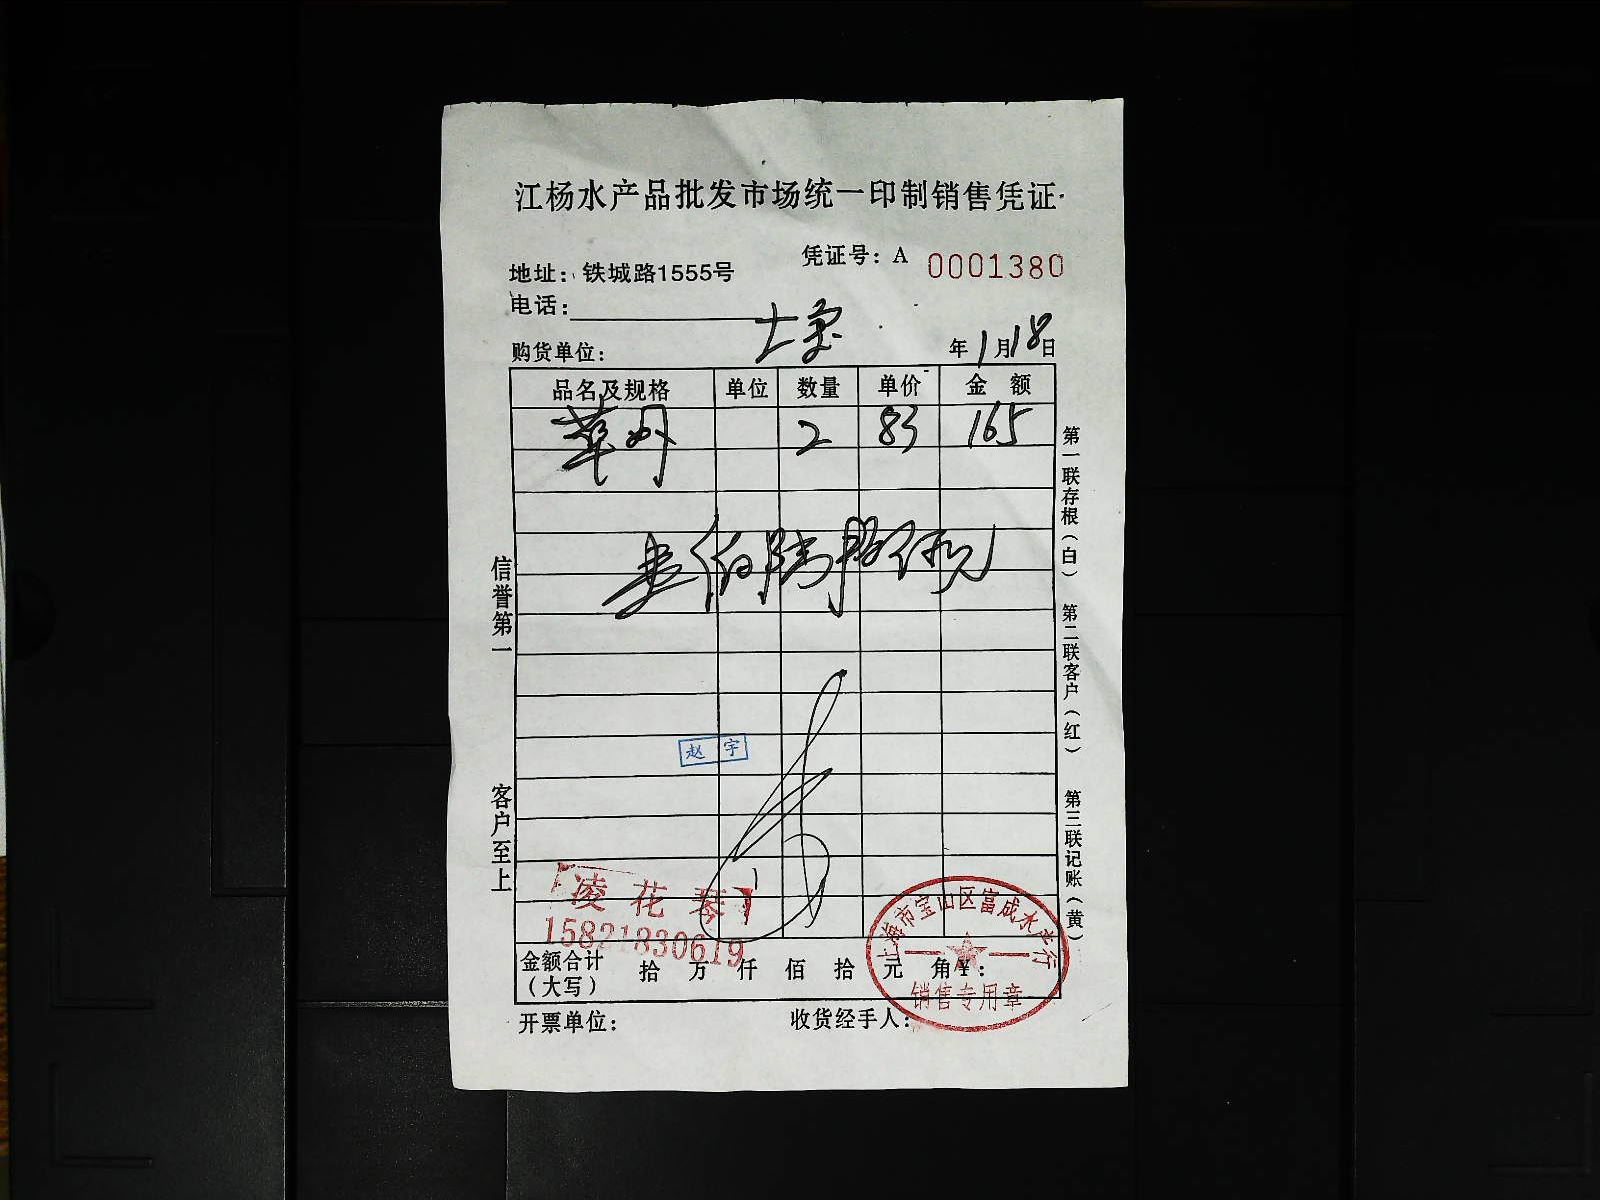 江杨水产品批发市场统一印制销售凭证
凭证号：A 0001380
地址：铁城路1555号
电话：
购货单位： 年1月18日
品名及规格 单位 数量 单价 金额
2 83 165
壹佰陆拾伍元
信誉第一
客户至上
第一联存根（白）
第二联客户（红）
第三联记账（黄）
赵宇
凌花琴
15821830619
上海市宝山区富成水产行
销售专用章
金额合计（大写） 拾 万 仟 佰 拾 元 角￥：
开票单位： 收货经手人：